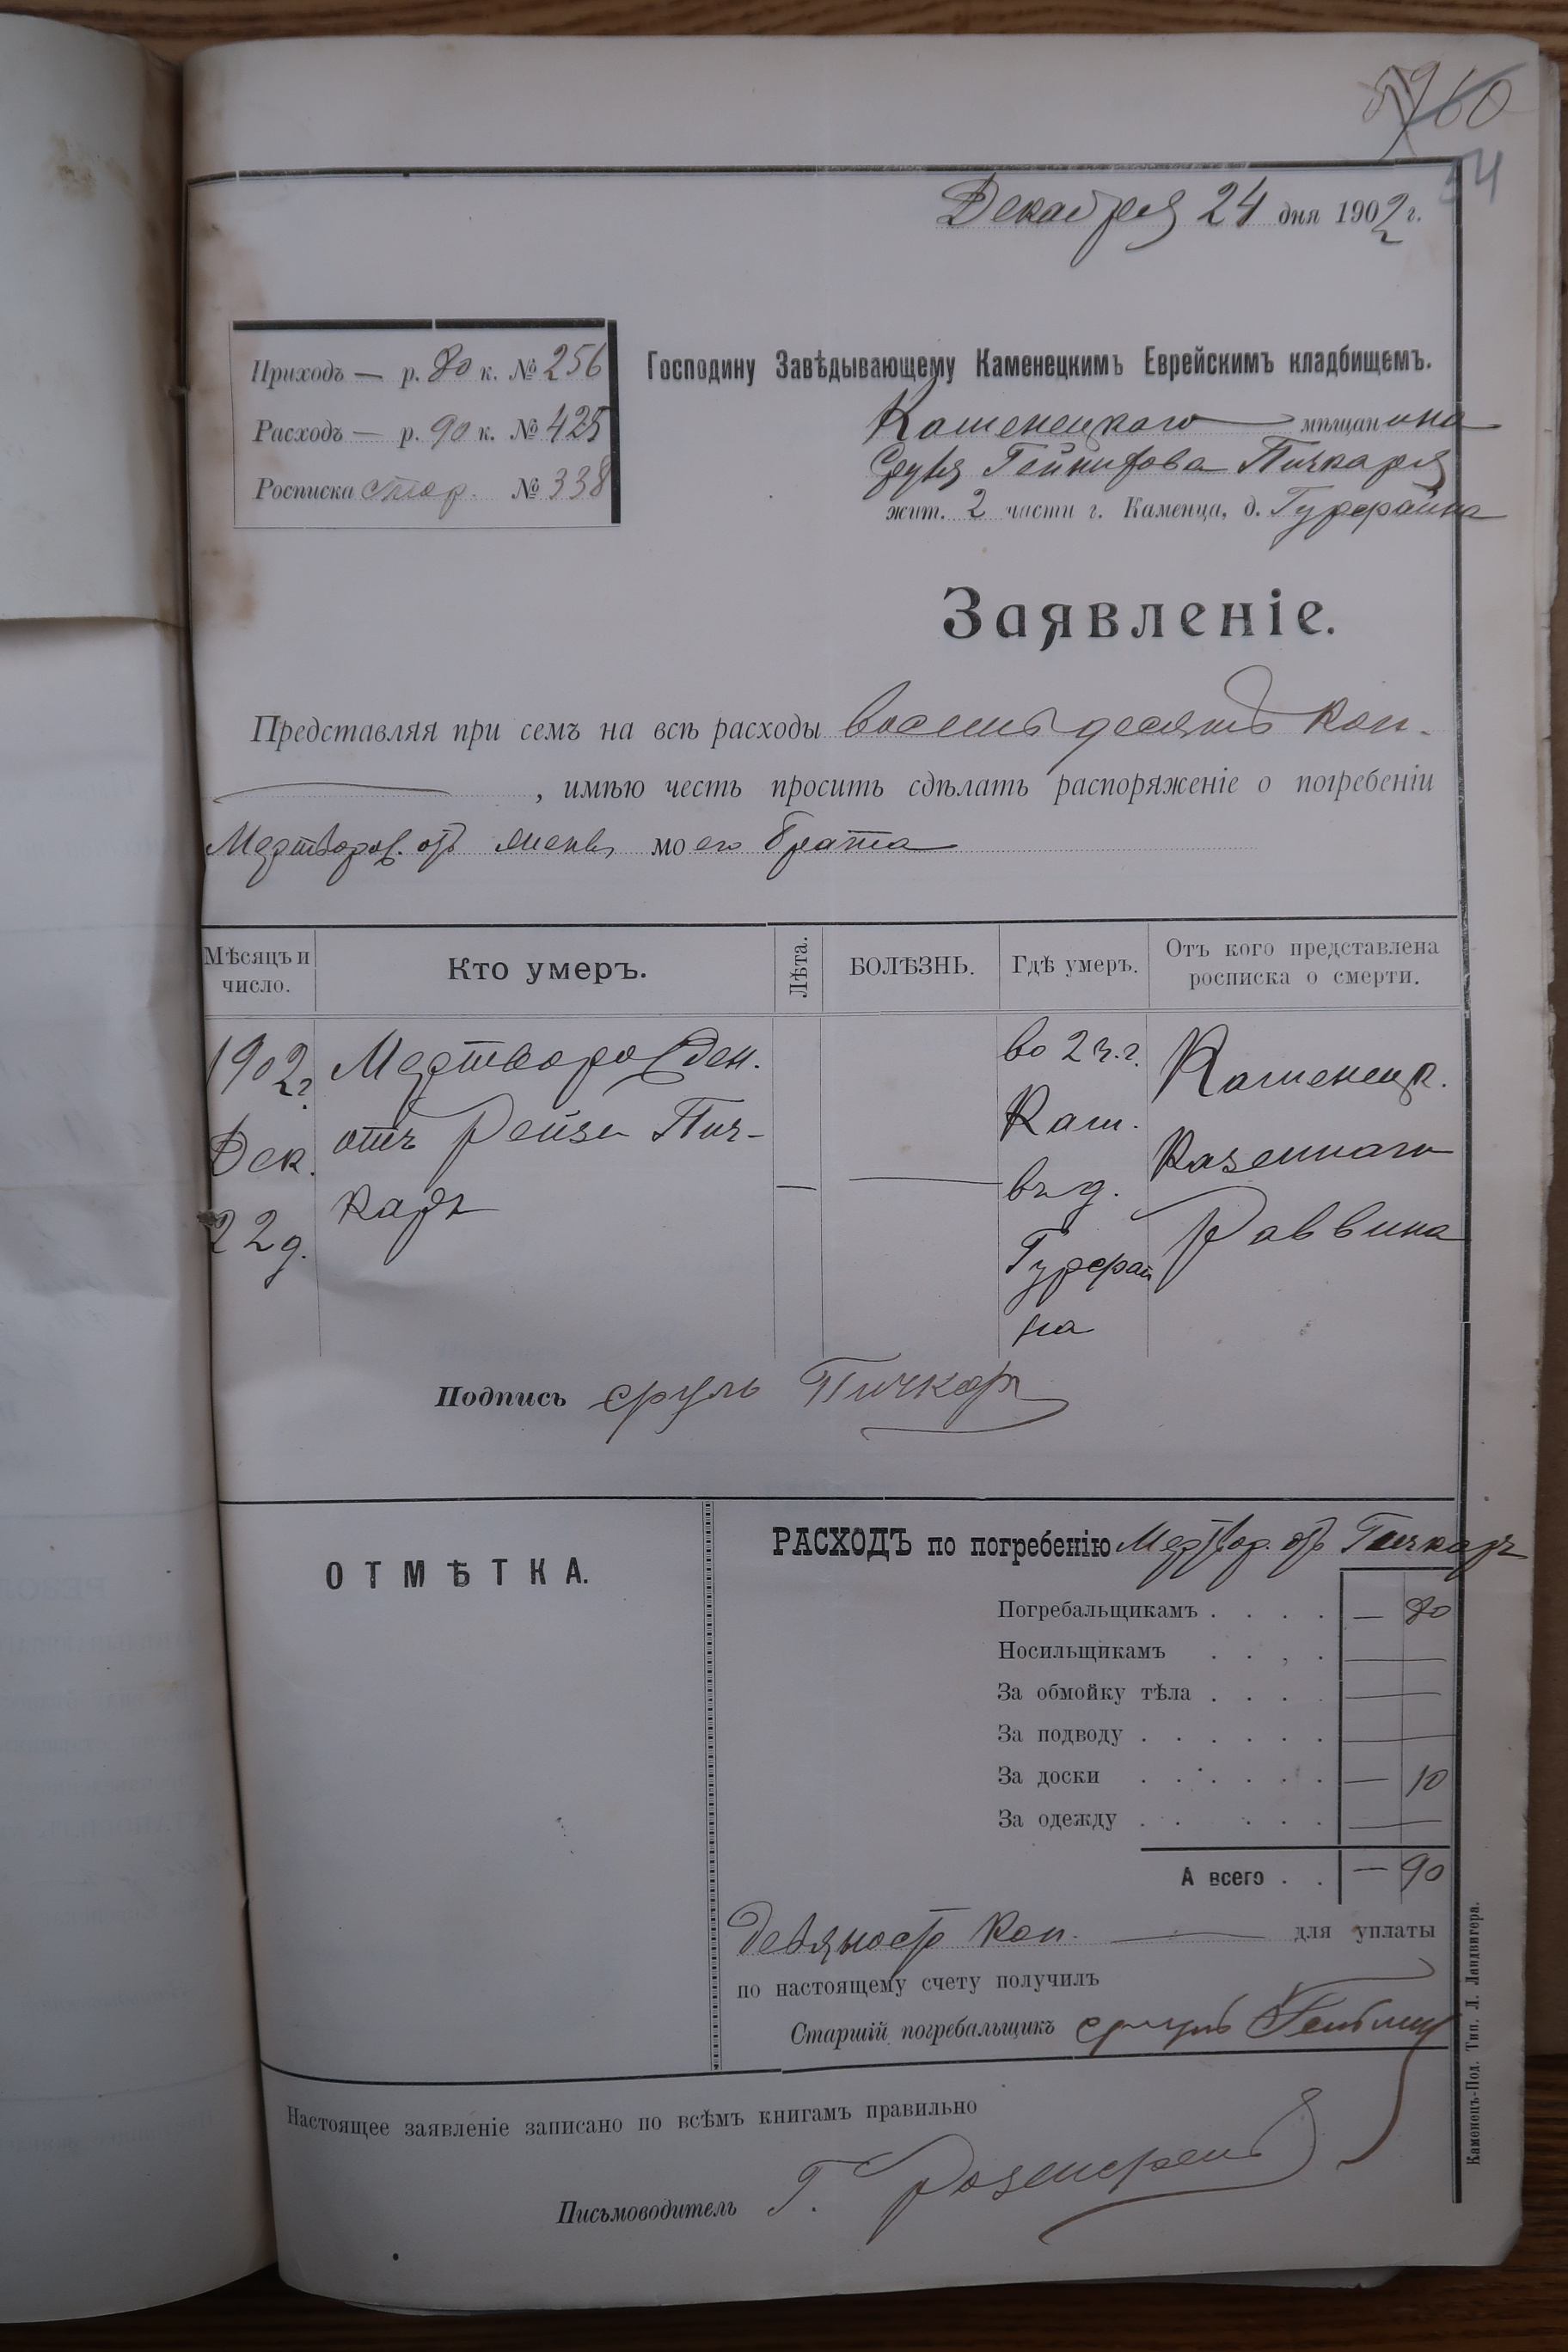 60
54
Декабря 24 дня 1902 г.
Приходъ — р. 80 к. № 256
Расходъ — р. 90 к. № 425
Росписка № 338
Господину Завѣдывающему Каменецкимъ Еврейскимъ кладбищемъ.
Каменецкаго мѣщанина
Сруля Пичкаря
жит. 2 части г. Каменца, д. Гурфайна
Заявленіе.
Представляя при семъ на всѣ расходы восемьдесятъ коп.
, имѣю честь просить сдѣлать распоряженіе о погребеніи
Мертворож. отъ моего брата
Мѣсяцъ и число.
Кто умеръ.
Лѣта.
БОЛѢЗНЬ.
Гдѣ умеръ.
Отъ кого представлена росписка о смерти.
1902 г.
Дек.
22 д.
Мертворожден.
отъ Рейзи Пич-
каръ
—
—
во 2 ч. г.
Кам.
въ д.
Гурфай
на
Каменецк.
Казеннаго
Раввина
Подпись Сруль Пичкар
ОТМѢТКА.
РАСХОДЪ по погребенію Мертвор. отъ Пичкаръ
Погребальщикамъ . . . . — 80
Носильщикамъ . . . . —
За обмойку тѣла . . . . —
За подводу . . . . . . —
За доски . . . . . . — 10
За одежду . . . . . . —
А всего . . — 90
девяносто коп. — для уплаты
по настоящему счету получилъ
Старшій погребальщикъ Сруль
Настоящее заявленіе записано по всѣмъ книгамъ правильно
Письмоводитель Г.
Каменецъ-Под. Тип. Л. Ландвигера.